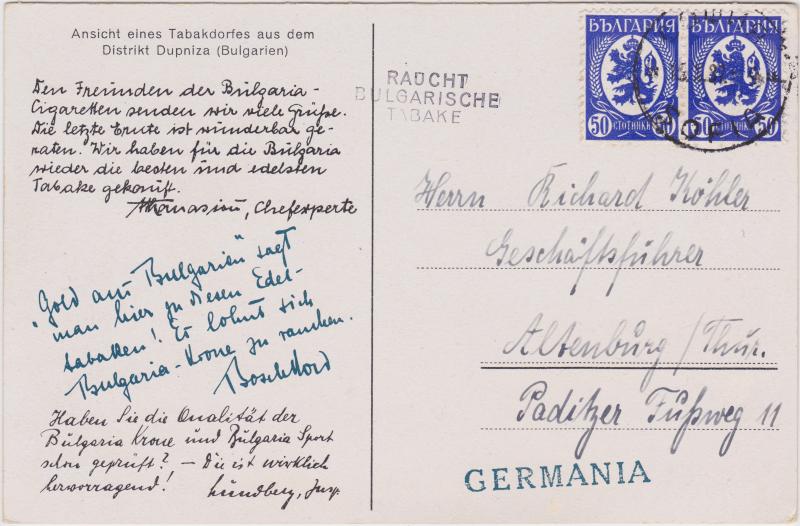 Ansicht eines Tabakdorfes aus dem
Distrikt Dupniza (Bulgarien)
Den Freunden der Bulgaria-
Cigaretten senden wir viele Grüße.
Die letzte Ernte ist wunderbar ge-
raten. Wir haben für die Bulgaria
wieder die besten und edelsten
Tabake gekauft.
Athanasiou, Chefexperte
"Gold aus Bulgarien" sagt
man hier zu diesen Edel-
tabaken! Es lohnt sich
Bulgaria-Krone zu rauchen.
Haben Sie die Qualität der
Bulgaria Krone und Bulgaria Sport
schon geprüft? – Die ist wirklich
hervorragend! Lundberg, Insp.
RAUCHT
BULGARISCHE
TABAKE
БЪЛГАРИЯ
50 СТОТИНКИ 50
БЪЛГАРИЯ
50 СТОТИНКИ 50
SOFIA
Herrn Richard Köhler
Geschäftsführer
Altenburg/Thür.
Paditzer Fußweg 11
GERMANIA